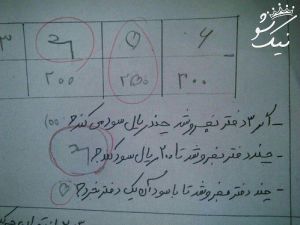 نیک شو
۳ ۲ ۵ ۶
۲۰۰ ۲۵۰ ۳۰۰
- اگر ۳ دفتر بفروشد چند ریال سود می‌کند؟ ۱۵۰
- چند دفتر بفروشد تا ۲۰۰ ریال سود کند؟
- چند دفتر بفروشد تا با سود آن یک دفتر بخرد؟ ۵